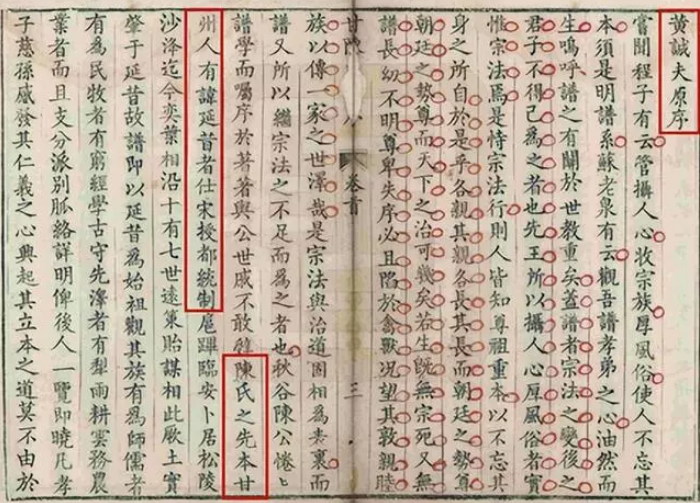 黄誠夫原序
嘗聞程子有云管攝人心收宗族厚風俗使人不忘其
本須是明譜系蘇老泉有云觀吾譜孝弟之心油然而
生嗚呼譜之有關於世教重矣蓋譜者宗法之變後之
君子不得已為之者也先王所以攝人心厚風俗者實
惟宗法焉是恃宗法行則人皆知尊祖重本以不忘其
身之所自於是乎各親其親各長其長而朝廷之勢尊
朝廷之勢尊而天下之治可幾矣若生既無宗死又無
譜長幼不明尊卑失序必且陷於禽獸况望其敦親睦
甘陳 卷首 三
族以傳一家之世澤哉是宗法與治道固相為表裏而
譜又所以繼宗法之不足而為之者也秋谷陳公惓ヒ
譜學而囑序於著著與公世戚不敢辭陳氏之先本甘
州人有諱延昔者仕宋授都統制扈蹕臨安卜居松陵
沙洚迄今奕葉相沿十有七世遠策貽謀相此厥土實
肇于延昔故譜即以延昔為始祖觀其族有為師儒者
有為民牧者有窮經學古守先澤者有犁雨耕雲務農
業者而且支分派别脈絡詳明俾後人一覽即曉凡孝
子慈孫感發其仁義之心興起其立本之道莫不由於